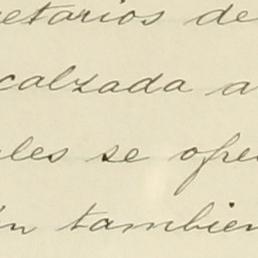 etarios de
calzada a
les se ope
in tambien